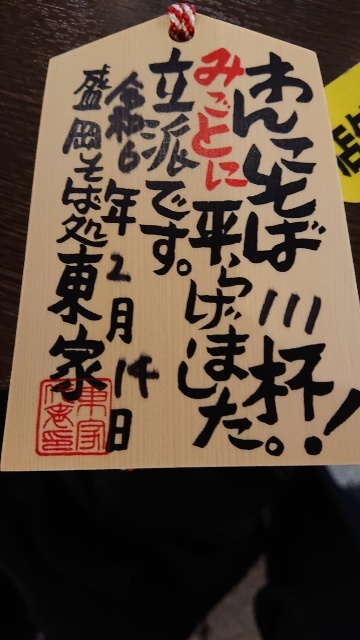 わんこそば 111杯!
みごとに平らげました。
立派です。
令和6年2月14日
盛岡そば処東家